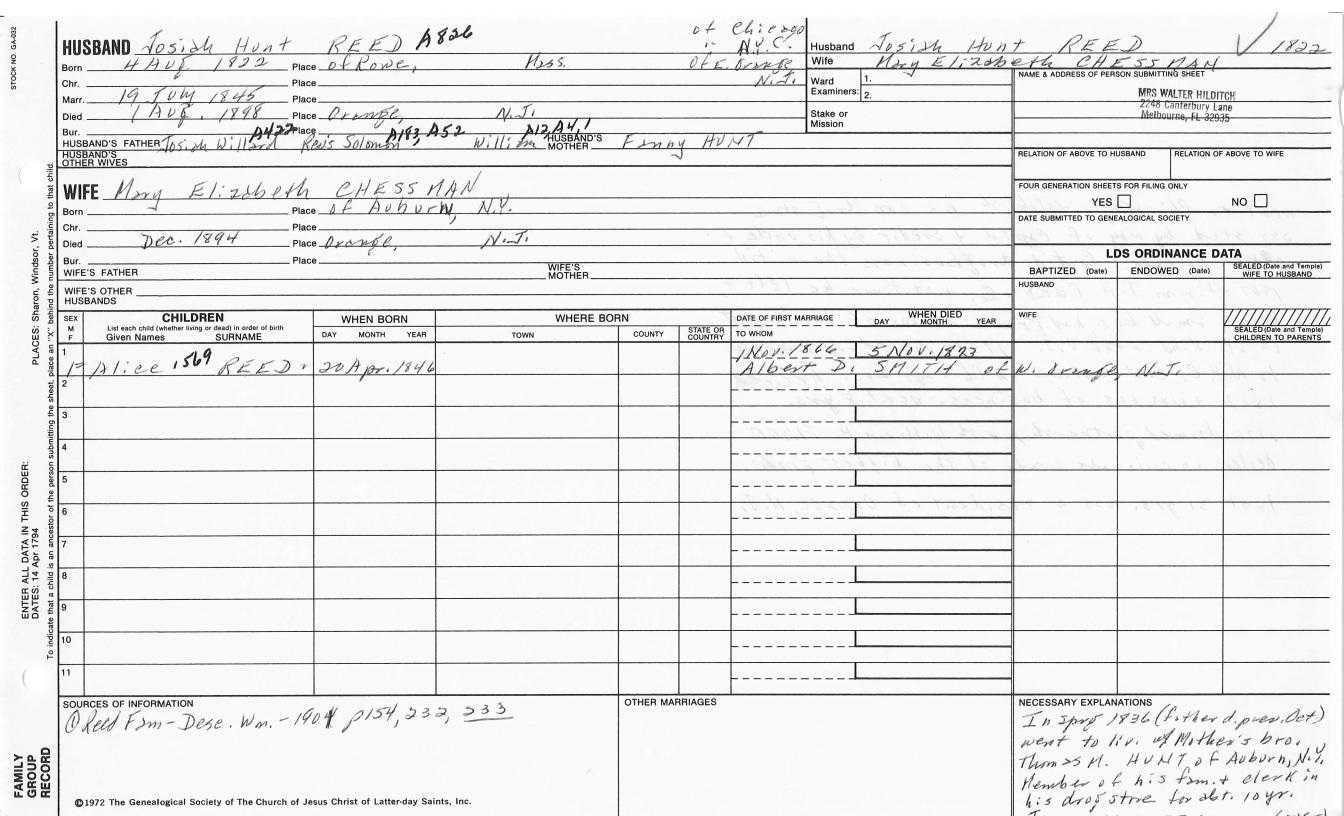 STOCK NO. GA-032
HUSBAND Josiah Hunt REED A826 of Chicago
" N.Y.C.
Born 4 Aug 1822 Place of Rowe, Mass. Of E. Orange
Chr. Place N.J.
Marr. 19 July 1845 Place
Died 1 Aug. 1898 Place Orange, N.J.
Bur. A422 Place A183, A52 A12, A4, 1
HUSBAND'S FATHER Josiah Willard Rev's Solomon William HUSBAND'S MOTHER Fanny HUNT
HUSBAND'S OTHER WIVES
Husband Josiah Hunt REED 1822
Wife Mary Elizabeth CHESSMAN
Ward Examiners: 1.
2.
Stake or Mission
NAME & ADDRESS OF PERSON SUBMITTING SHEET
MRS WALTER HILDITCH
2248 Canterbury Lane
Melbourne, FL 32935
RELATION OF ABOVE TO HUSBAND RELATION OF ABOVE TO WIFE
FOUR GENERATION SHEETS FOR FILING ONLY
YES NO
DATE SUBMITTED TO GENEALOGICAL SOCIETY
WIFE Mary Elizabeth CHESSMAN
Born Place of Auburn, N.Y.
Chr. Place
Died Dec. 1894 Place Orange, N.J.
Bur. Place
WIFE'S FATHER WIFE'S MOTHER
WIFE'S OTHER HUSBANDS
LDS ORDINANCE DATA
BAPTIZED (Date) ENDOWED (Date) SEALED (Date and Temple) WIFE TO HUSBAND
HUSBAND
WIFE
SEALED (Date and Temple) CHILDREN TO PARENTS
SEX M F CHILDREN WHEN BORN WHERE BORN DATE OF FIRST MARRIAGE WHEN DIED
List each child (whether living or dead) in order of birth
Given Names SURNAME DAY MONTH YEAR TOWN COUNTY STATE OR COUNTRY TO WHOM DAY MONTH YEAR
1 1 Nov. 1866 5 Nov. 1893
F Alice 1569 REED. 20 Apr. 1846 Albert D. SMITH of W. Orange, N.J.
2
3
4
5
6
7
8
9
10
11
SOURCES OF INFORMATION
① Reed Fam - Desc. Wm. - 1904 p154, 232, 233
OTHER MARRIAGES
NECESSARY EXPLANATIONS
In Sprg 1836 (father d. prev. Oct.)
went to liv. w/ Mother's bro.
Thomas M. HUNT of Auburn, N.Y.
Member of his fam. + clerk in
his drug store for abt. 10 yr.
©1972 The Genealogical Society of The Church of Jesus Christ of Latter-day Saints, Inc.
FAMILY GROUP RECORD
ENTER ALL DATA IN THIS ORDER:
DATES: 14 Apr 1794
PLACES: Sharon, Windsor, Vt.
To indicate that a child is an ancestor of the person submitting the sheet, place an "X" behind the number pertaining to that child.